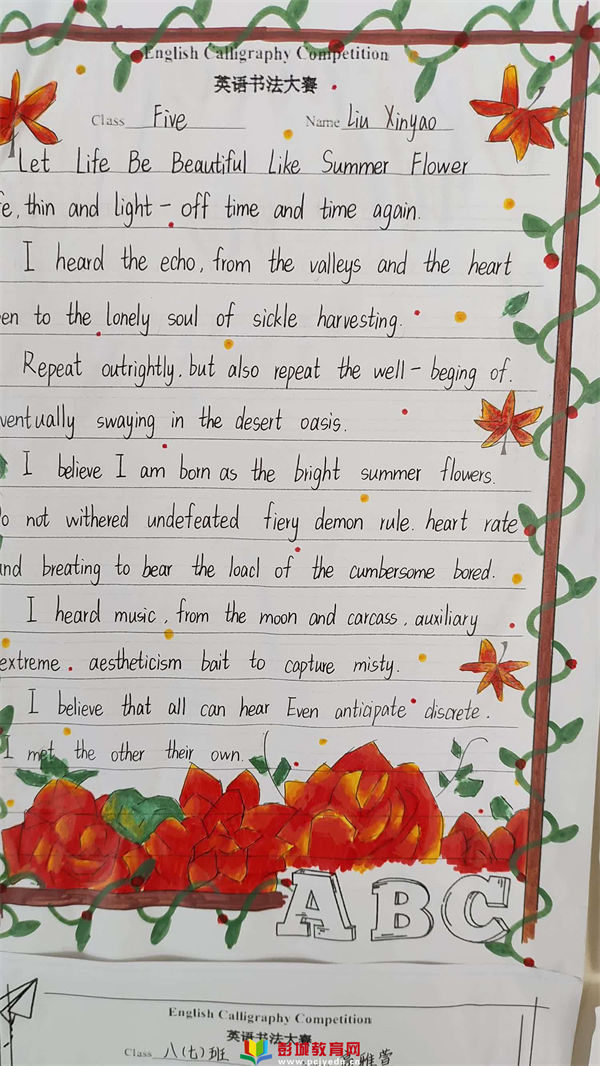 English Calligraphy Competition
英语书法大赛
Class Five Name Liu Xinyao
Let Life Be Beautiful Like Summer Flower
fe, thin and light - off time and time again.
I heard the echo, from the valleys and the heart
en to the lonely soul of sickle harvesting.
Repeat outrightly, but also repeat the well - beging of.
ventually swaying in the desert oasis.
I believe I am born as the bright summer flowers.
o not withered undefeated fiery demon rule. heart rate
and breating to bear the loacl of the cumbersome bored.
I heard music, from the moon and carcass, auxiliary
extreme. aestheticism bait to capture misty.
I believe that all can hear Even anticipate discrete.
I met the other their own.
ABC
English Calligraphy Competition
英语书法大赛
Class 八(七)班
雅萱
彭城教育网
www.pcjyedu.cn